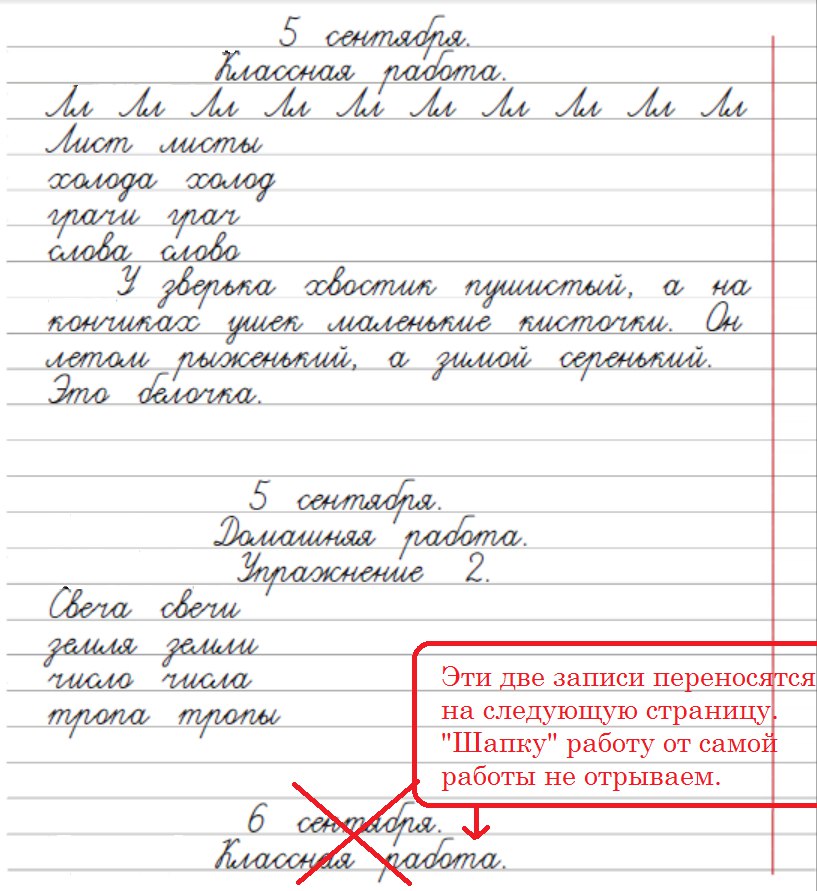 5 сентября.
Классная работа.
Лл Лл Лл Лл Лл Лл Лл Лл Лл Лл
Лист листы
холода холод
грачи грач
слова слово
У зверька хвостик пушистый, а на
кончиках ушек маленькие кисточки. Он
летом рыженький, а зимой серенький.
Это белочка.
5 сентября.
Домашняя работа.
Упражнение 2.
Свеча свечи
земля земли
число числа
тропа тропы
Эти две записи переносятся
на следующую страницу.
"Шапку" работу от самой
работы не отрываем.
6 сентября.
Классная работа.